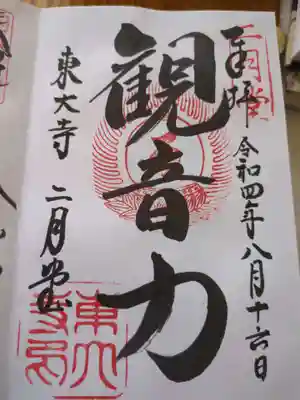 二月堂
奉拝
令和四年八月十六日
観音力
東大寺 二月堂